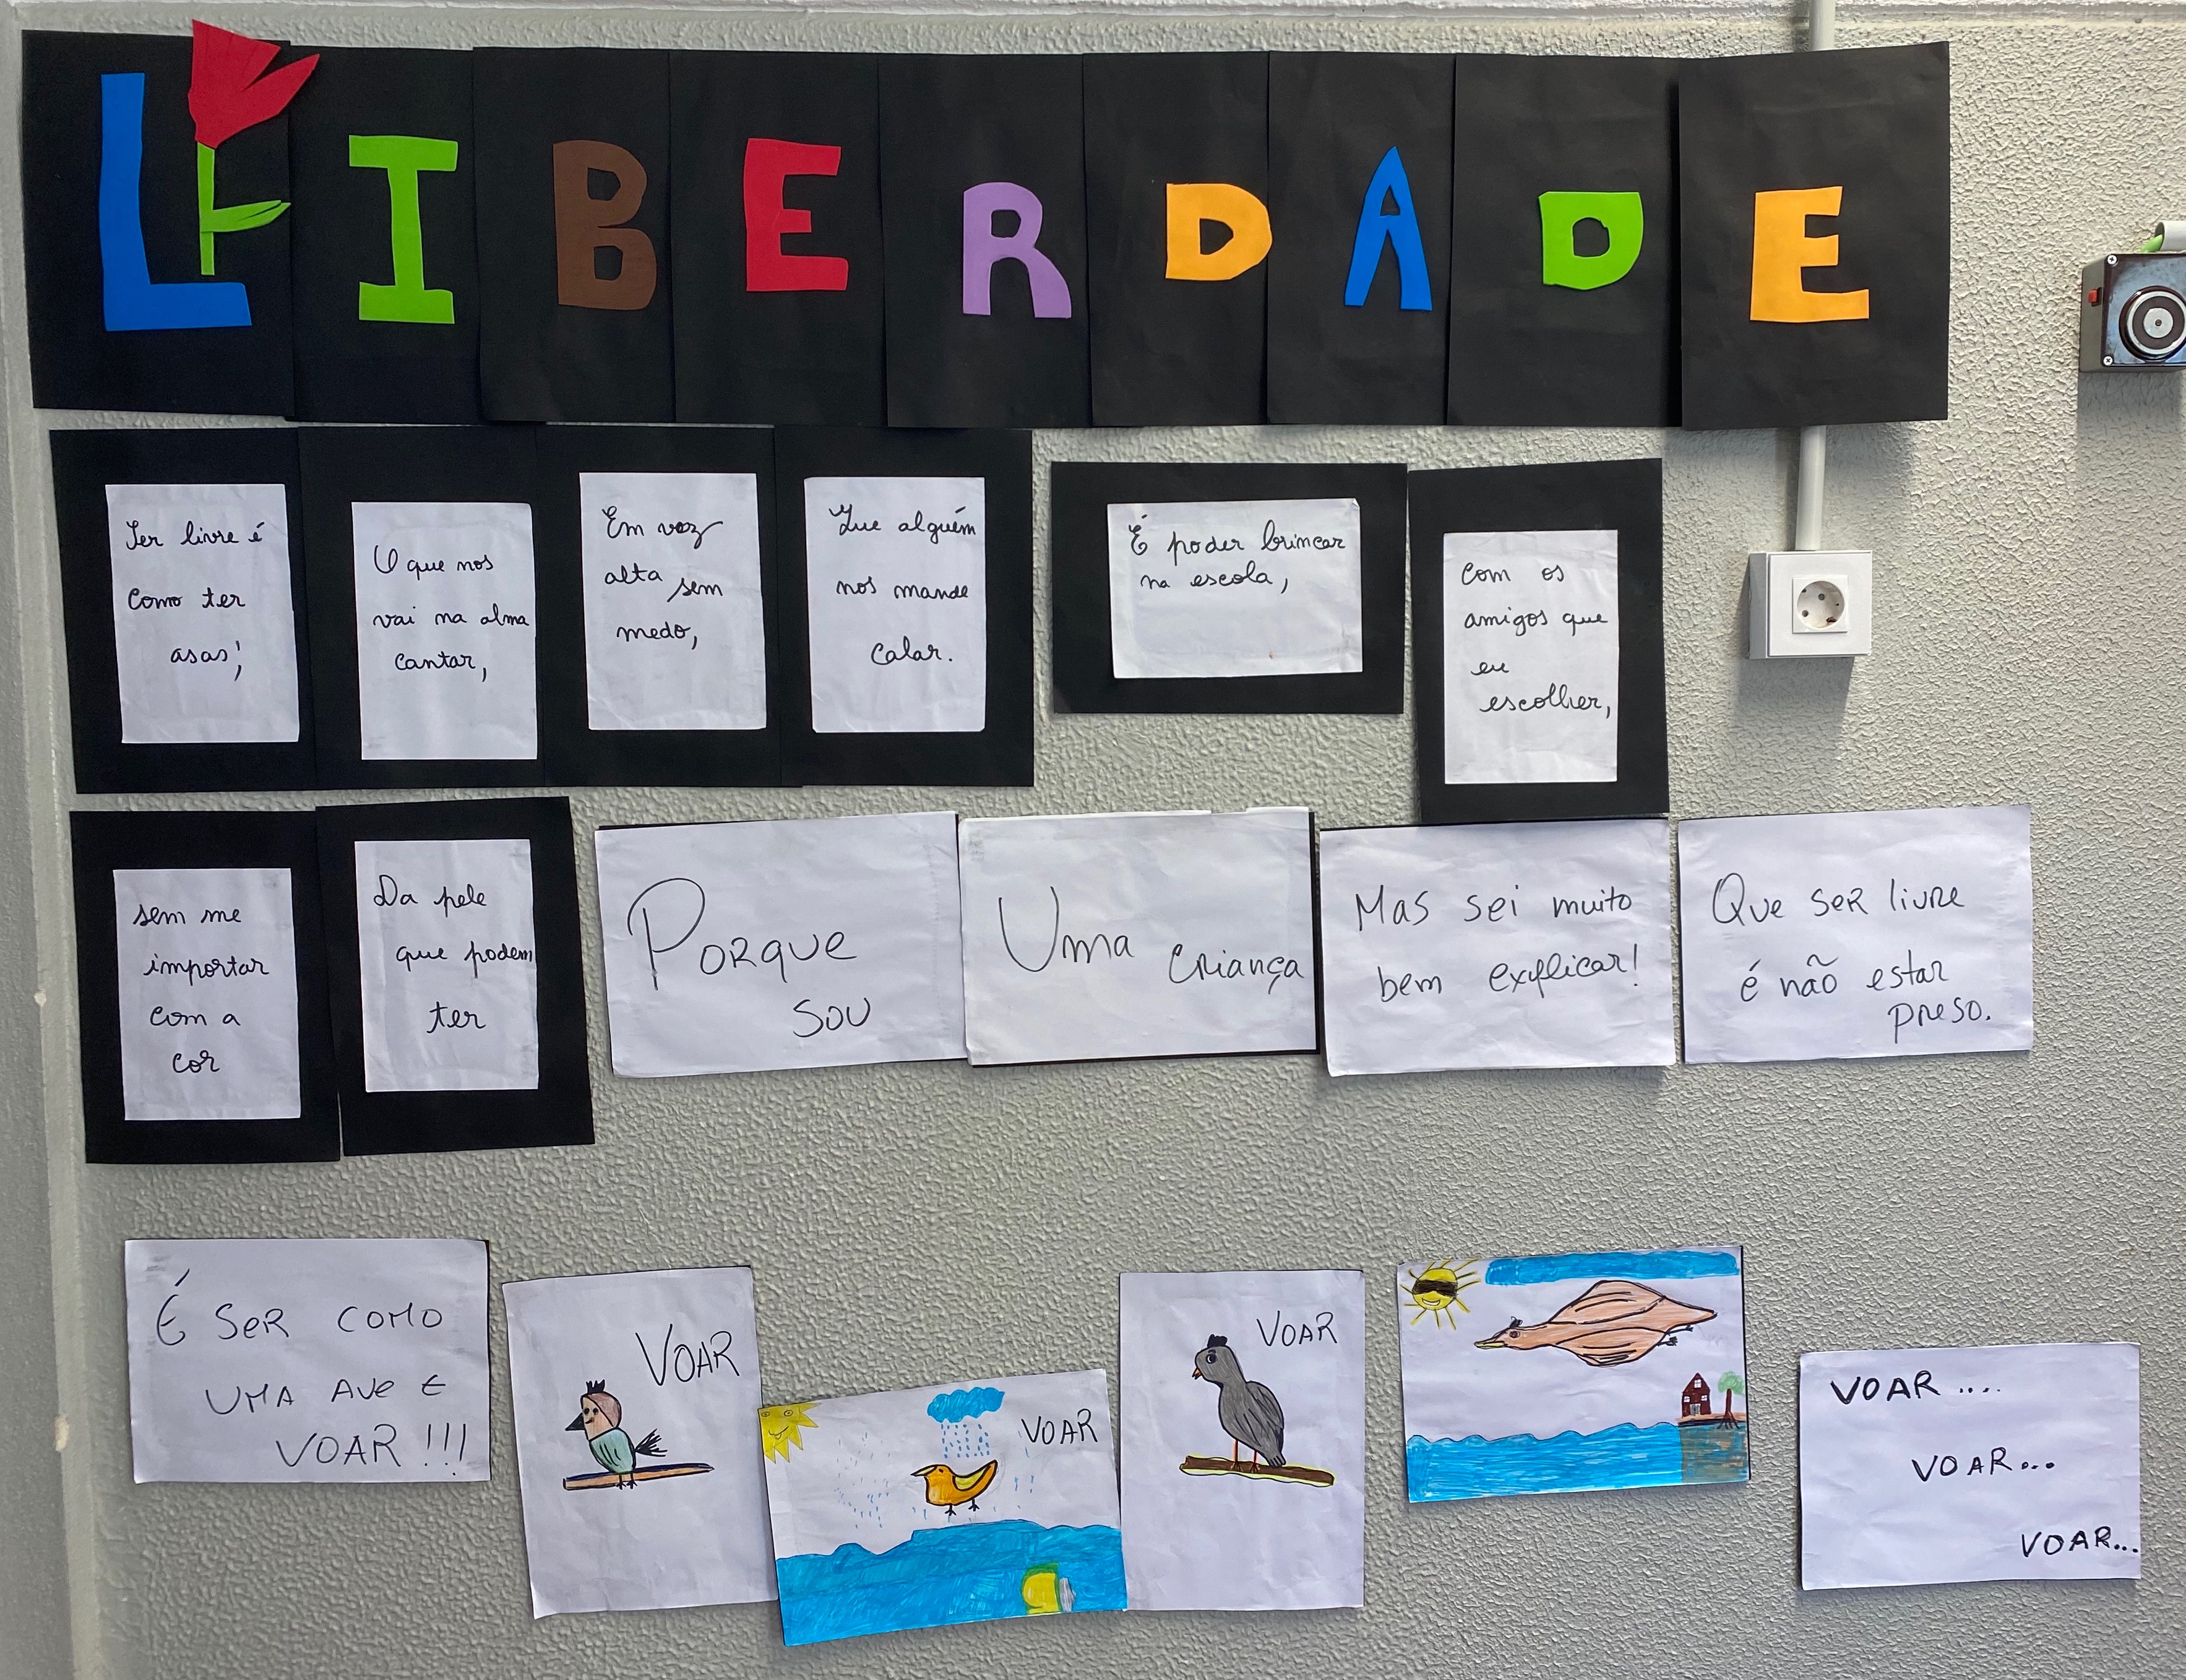 LIBERDADE
Ser livre é
como ter
asas,
O que nos
vai na alma
cantar,
Em voz
alta sem
medo,
Que alguém
nos mande
calar.
É poder brincar
na escola,
com os
amigos que
eu
escolher,
sem me
importar
com a
cor
Da pele
que podem
ter
Porque
sou
Uma criança
Mas sei muito
bem explicar!
Que ser livre
é não estar
preso.
É SER COMO
UMA AVE E
VOAR!!!
VOAR
VOAR
VOAR
VOAR....
VOAR...
VOAR...